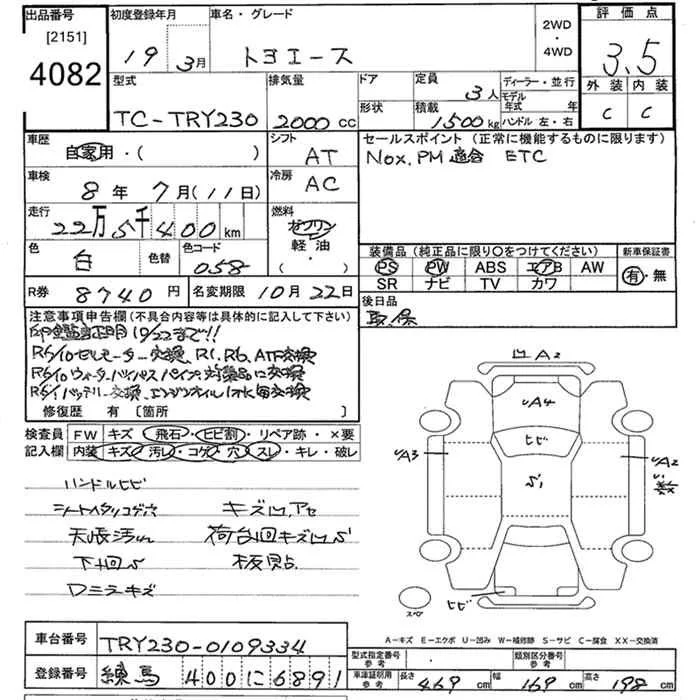 出品番号 初度登録年月 車名・グレード 2WD・4WD 評価点
[2151]
4082
19年 3月 トヨエース 3.5
型式 排気量 ドア 定員 3人 ディーラー・並行 外装 内装
TC-TRY230 2000cc 形状 積載 1500kg モデル年式 年 C C
ハンドル 左・右
車歴 シフト セールスポイント (正常に機能するものに限ります)
自家用・( ) AT Nox.PM適合 ETC
車検 冷房
8年 7月(11日) AC
走行 燃料
22万5千400km ガソリン
軽油
・( )
色 白 色替 色コード 058
装備品(純正品に限り○をつけてください) 新車保証書
PS PW ABS エアB AW 有・無
SR ナビ TV カワ
R券 8740円 名変期限 10月22日 後日品
取,保
注意事項申告欄(不具合内容等は具体的に記入して下さい)
印鑑証明 10/22まで!!
R5/10セルモーター交換、R1、R6、ATF交換
R6/10ウォーターバイパスパイプ対策品に交換
R5/1バッテリー交換、エンジンオイル
修復歴 有 [箇所 ]
検査員記入欄 FW キズ・飛石・ヒビ割・リペア跡・×要
内装 キズ・汚レ・コゲ・穴・スレ・キレ・破レ
ハンドルヒビ
シートヘタリコゲ穴 キズ凹、アセ
天張汚れ 荷台回キズ凹S
下回S 板貼
ロミラキズ
凹 A2
UA4
ヒビ
UA3
S1
UA2
ヒビ
スペア
A-キズ E-エクボ U-凹み W-補修跡 S-サビ C-腐食 XX-交換済
車台番号 TRY230-0109334
型式指定番号 参考 類別区分番号 参考
登録番号 練馬 400に6891
車庫証明用 参考 長さ 469cm 幅 169cm 高さ 198cm